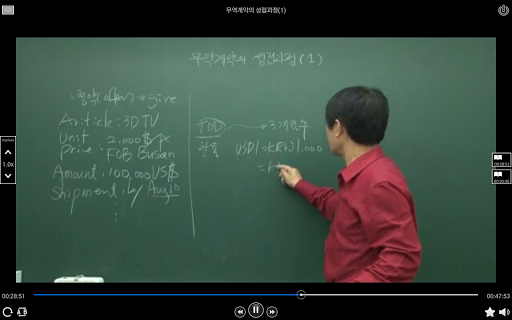 무역계약의 성립과정(1)
무역계약의 성립과정(1)
청약(offer) → give
Ariticle : 3D TV
Unit price : 2.000$/pc
FOB Busan
Amount : 100,000US$
Shipment : by Aug 10
TOD → 3개월후
환율 USD1=KRW1.000
1.0x
00:28:51
00:28:51
00:47:53